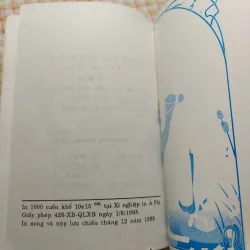 In 1000 cuốn khổ 10x15 cm tại Xí nghiệp in A Phi
Giấy phép 426-XB-QLXB ngày 1/6/1993
In xong và nộp lưu chiểu tháng 12 năm 1993